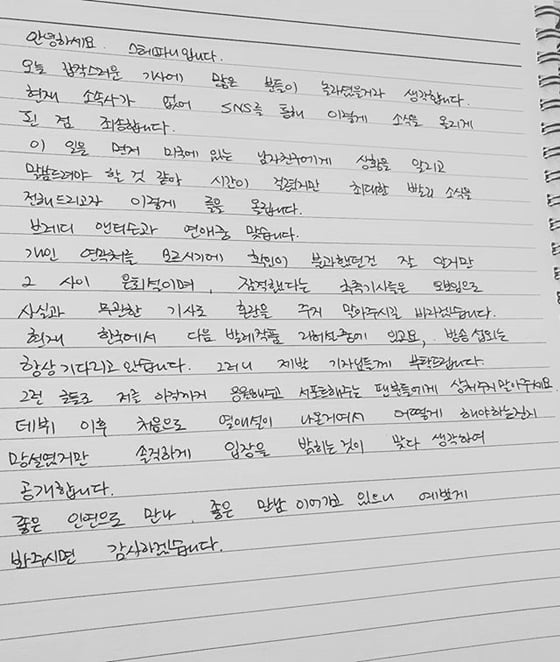 안녕하세요. 스테파니입니다.
오늘 갑작스러운 기사에 많은 분들이 놀라셨을거라 생각합니다.
현재 소속사가 없어 SNS를 통해 이렇게 소식을 올리게
된 점 죄송합니다.
이 일을 먼저 미국에 있는 남자친구에게 상황을 알리고
말씀드려야 할 것 같아 시간이 걸렸지만 최대한 빨리 소식을
전해드리고자 이렇게 글을 올립니다.
브레디 앤더슨과 연애중 맞습니다.
개인 연락처를 모르시기에 확인이 불과했던건 잘 알지만
그 사이 은퇴설이며, 잠적했다는 추측기사들은
사실과 무관한 기사로 혼란을 주지 말아주시길 바라겠습니다.
현재 한국에서 다음 발레작품 리허설중에 있고요, 방송 섭외는
항상 기다리고 있습니다. 그러니 제발 기자님들께 부탁드립니다.
그런 글들로 저를 아직까지 응원해주고 서포트해주는 팬분들에게 상처주지 말아주세요.
데뷔 이후 처음으로 열애설이 나온거여서 어떻게 해야하는건지
망설였지만 솔직하게 입장을 밝히는것이 맞다 생각하여
공개합니다.
좋은 인연으로 만나, 좋은 만남 이어가고 있으니 예쁘게
봐주시면 감사하겠습니다.